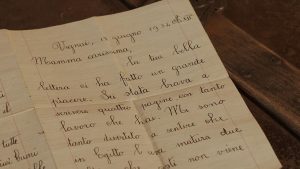 Vignai, 12 giugno 1934
Mamma carissima,
la tua bella
lettera ci ha fatto un grande
piacere. Sei stata brava a
scrivere quattro pagine con tanto
lavoro che hai. Mi sono
tanto divertito a sentire che
in Egitto l'uva matura due
non viene
tutti